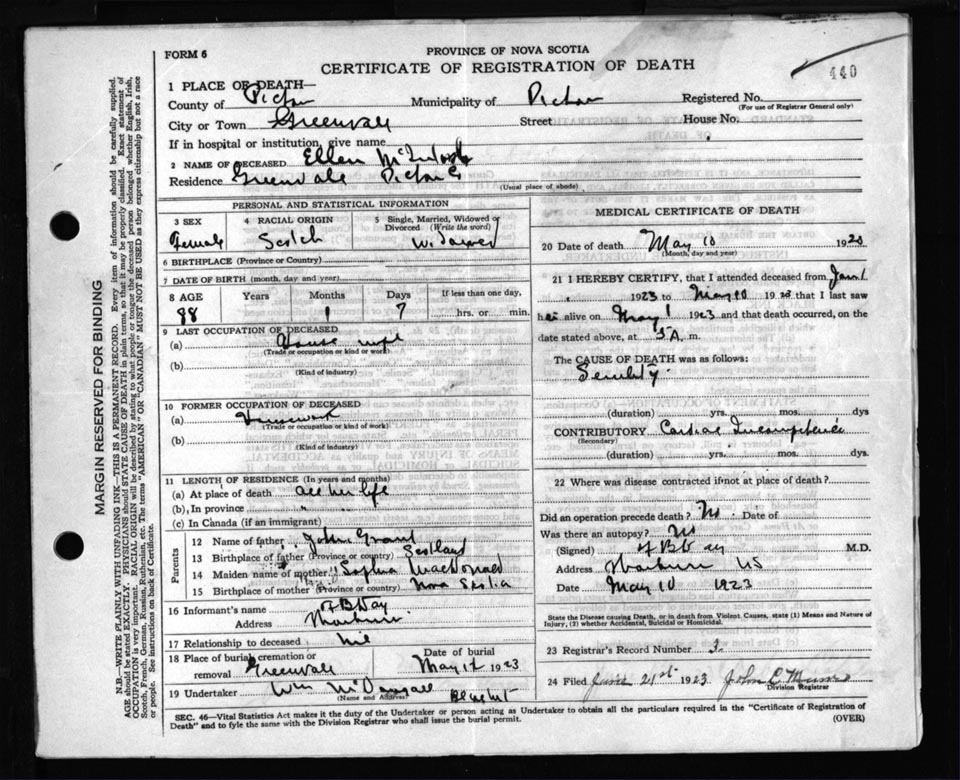 FORM 6
PROVINCE OF NOVA SCOTIA
CERTIFICATE OF REGISTRATION OF DEATH
440
1 PLACE OF DEATH—
County of Pictou Municipality of Pictou Registered No.
(For use of Registrar General only)
City or Town Greenvale Street House No.
If in hospital or institution, give name
2 NAME OF DECEASED Ellen McIntosh
Residence Greenvale Pictou Co
(Usual place of abode)
PERSONAL AND STATISTICAL INFORMATION
3 SEX 4 RACIAL ORIGIN 5 Single, Married, Widowed or Divorced (Write the word)
Female Scotch Widowed
6 BIRTHPLACE (Province or Country)
7 DATE OF BIRTH (month, day and year)
8 AGE Years Months Days If less than one day,
88 1 7 hrs. or min.
9 LAST OCCUPATION OF DECEASED
(a) House wife
(Trade or occupation or kind or work)
(b)
(Kind of industry)
10 FORMER OCCUPATION OF DECEASED
(a) Housework
(Trade or occupation or kind of work)
(b)
(Kind of industry)
11 LENGTH OF RESIDENCE (In years and months)
(a) At place of death all her life
(b) In province "
(c) In Canada (if an immigrant)
Parents
12 Name of father John Grant
13 Birthplace of father (Province or country) Scotland
14 Maiden name of mother Sophia MacDonald
15 Birthplace of mother (Province or country) Nova Scotia
16 Informant's name H B Day
Address
17 Relationship to deceased nil
18 Place of burial, cremation or removal Greenvale Date of burial May 12 1923
19 Undertaker Wm McDougall
(Name and Address)
MEDICAL CERTIFICATE OF DEATH
20 Date of death May 10 1923
(Month, day and year)
21 I HEREBY CERTIFY, that I attended deceased from Jan 1
1923 to May 10 1923 that I last saw
her alive on May 1 1923 and that death occurred, on the
date stated above, at A. m.
The CAUSE OF DEATH was as follows:
Senility
(duration) yrs. mos. dys
CONTRIBUTORY Cardiac Incompetence
(Secondary)
(duration) yrs. mos. dys.
22 Where was disease contracted if not at place of death?
Did an operation precede death? No Date of
Was there an autopsy? No
(Signed) H B Day M.D.
Address NS
Date May 10 1923
State the Disease Causing Death, or in death from Violent Causes, state (1) Means and Nature of Injury, (2) whether Accidental, Suicidal or Homicidal.
23 Registrar's Record Number 3
24 Filed June 21st 1923 John C Munro
Division Registrar
SEC. 46—Vital Statistics Act makes it the duty of the Undertaker or person acting as Undertaker to obtain all the particulars required in the "Certificate of Registration of Death" and to fyle the same with the Division Registrar who shall issue the burial permit.
(OVER)
MARGIN RESERVED FOR BINDING
N.B.—WRITE PLAINLY WITH UNFADING INK.—THIS IS A PERMANENT RECORD. Every item of information should be carefully supplied.
AGE should be stated EXACTLY. PHYSICIANS should STATE CAUSE OF DEATH in plain terms, so that it may be properly classified. Exact statement of
OCCUPATION is very important. RACIAL ORIGIN will be described by stating to what people or tongue the deceased person belonged whether English, Irish,
Scotch, French, German, Russian, Ruthenian, etc. The terms "AMERICAN" OR "CANADIAN" MUST NOT BE USED as they express citizenship but not a race
or people. See instructions on back of Certificate.